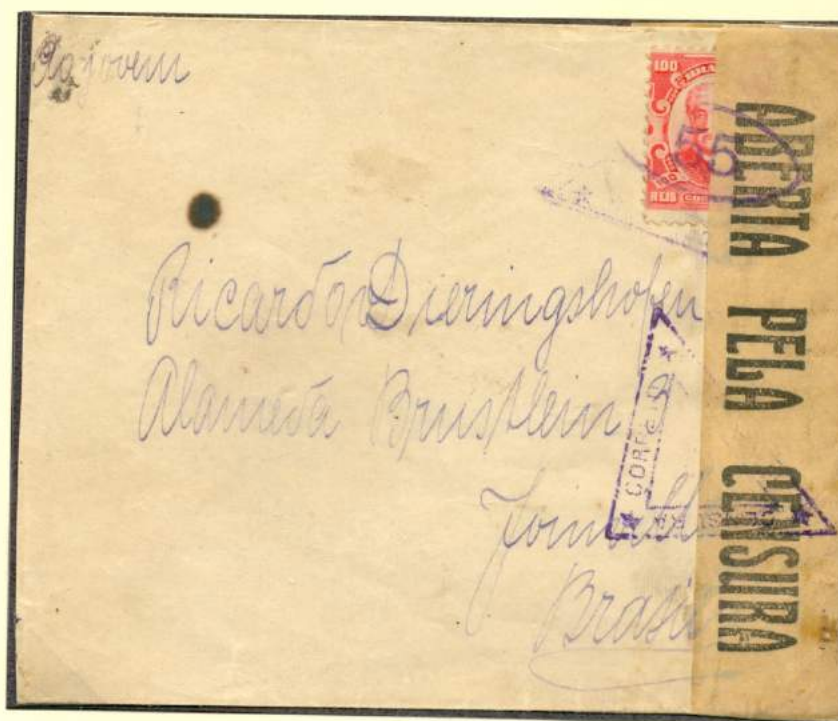 Ao jovem
100
REIS
55
Ricardo Dieringshofen
Alameda Brustlein
CORREIO
Joinville
Brasil
ABERTA PELA CENSURA